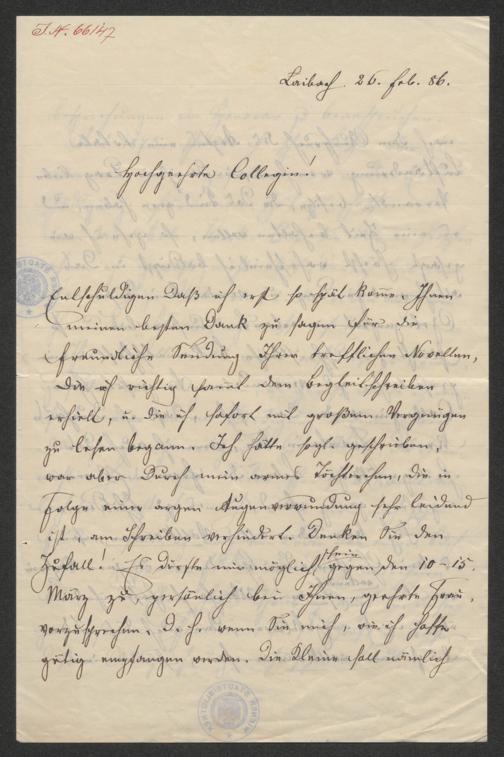 J.N. 66147
Laibach. 26. Feb. 86.
Hochgeehrte Collegin!
Entschuldigen Daß ich erst so spät komme, Ihnen
meinen besten Dank zu sagen für die
freundliche Sendung Ihrer trefflichen Novellen,
die ich richtig sammt dem Begleitschreiben
erhielt, u. die ich sofort mit großem Vergnügen
zu lesen begann. Ich hätte sogl. geschrieben,
war aber durch mein armes Töchterchen, die in
Folge einer argen Augenverwundung sehr leidend
ist, am Schreiben verhindert. Denken Sie den
Zufall! Es dürfte mir möglich sein gegen den 10-15.
März zu, persönlich bei Ihnen, geehrte Frau,
vorzusprechen. D. h. wenn Sie mich, wie ich hoffe
gütig empfangen werden. Die Kleine soll nämlich